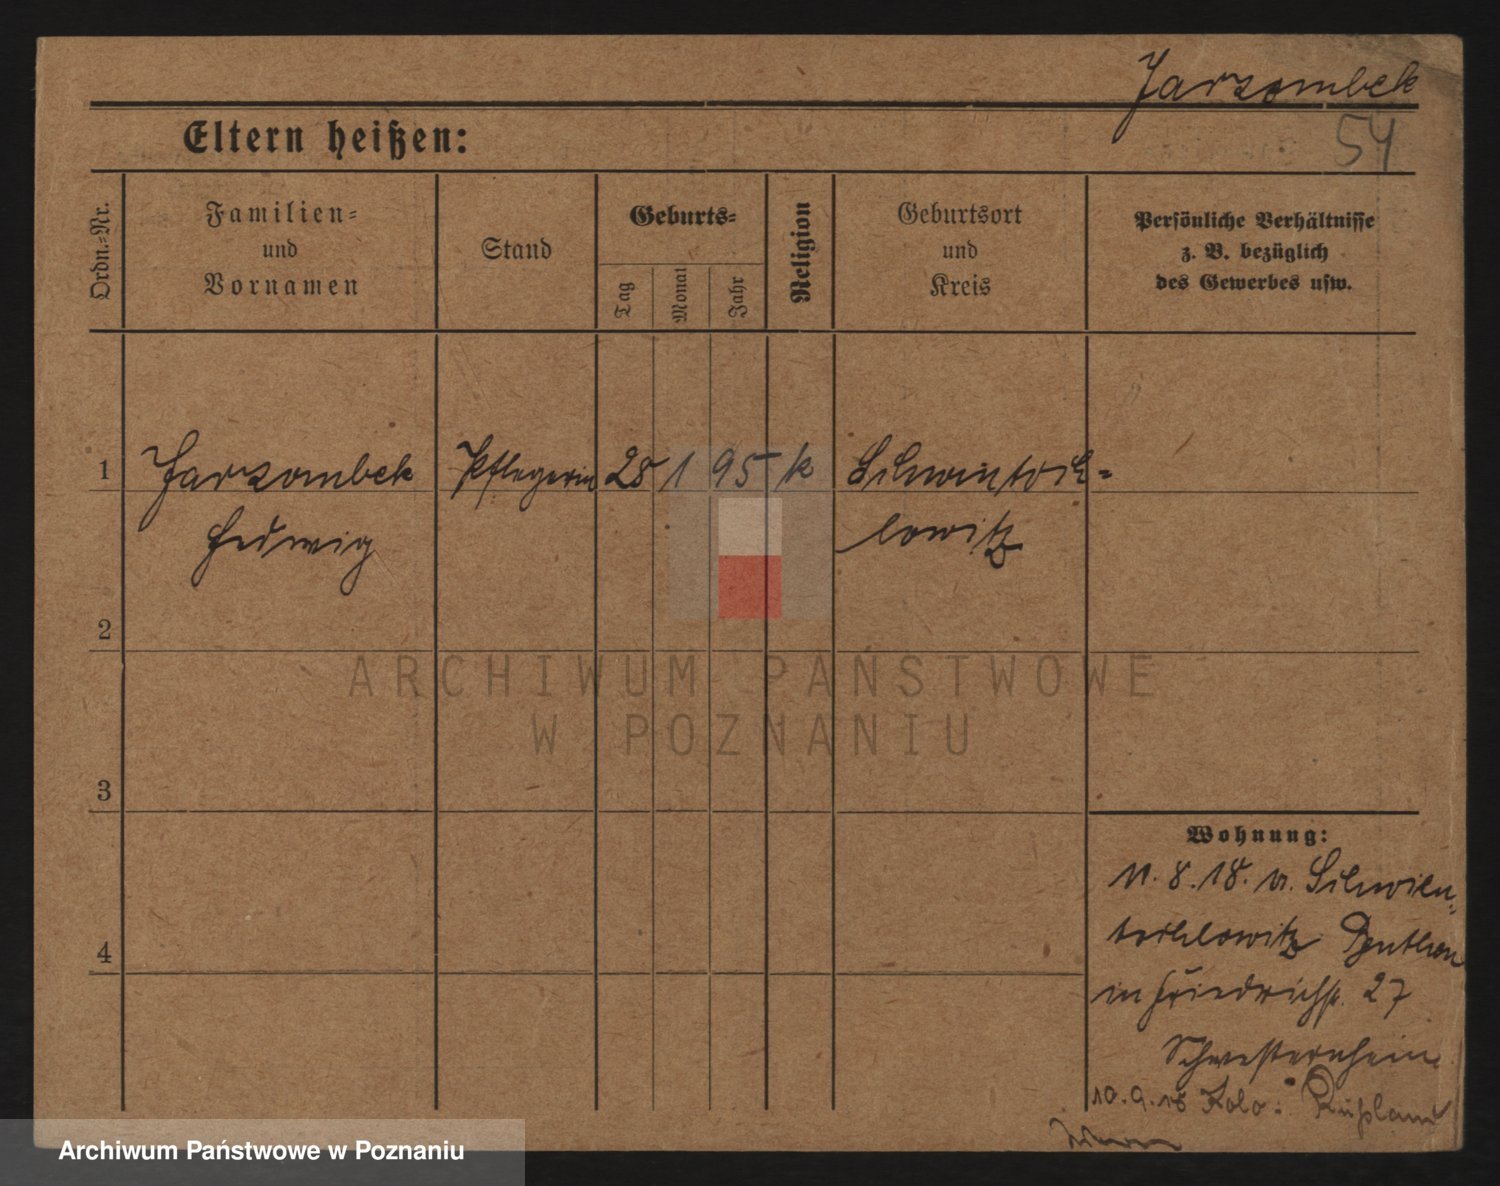 Jarzombek
54
Eltern heißen:
Ordn.-Nr.
Familien-
und
Vornamen
Stand
Geburts-
Tag
Monat
Jahr
Religion
Geburtsort
und
Kreis
Persönliche Verhältnisse
z. B. bezüglich
des Gewerbes usw.
1 Jarzombek Pflegerin 28 1 95 k Schwintoch-
Hedwig lowitz
2
ARCHIWUM PAŃSTWOWE
W POZNANIU
3
Wohnung:
11.8.18. v. Schwien-
tochlowitz Beuthen
4
in Friedrichstr. 27
Schwesternheim
10.9.18 Kolo: Rußland
Archiwum Państwowe w Poznaniu